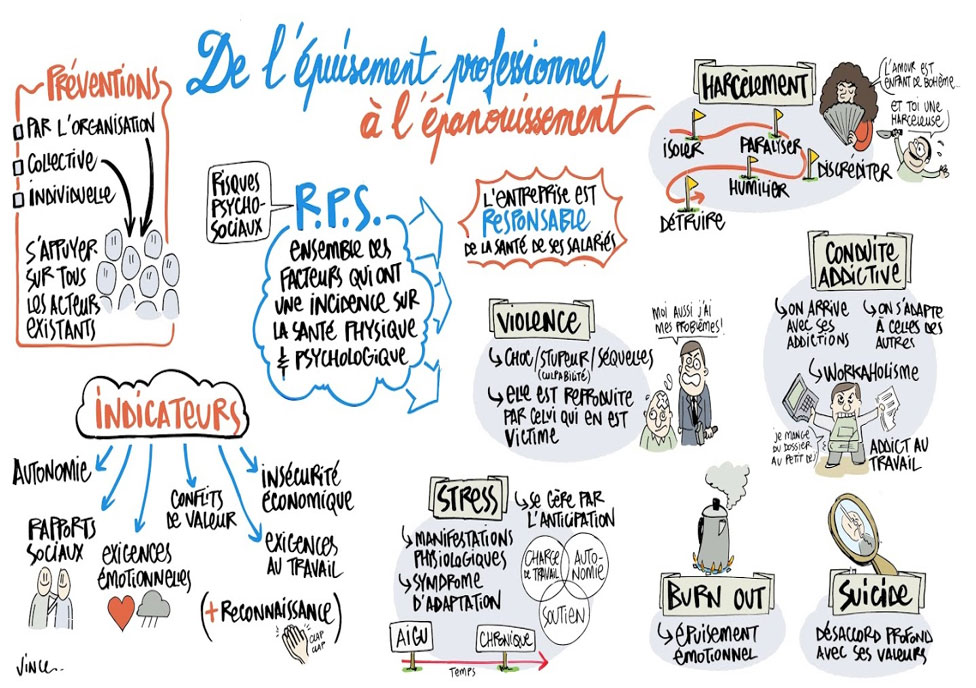 De l'épuisement professionnel
à l'épanouissement
PRÉVENTIONS
PAR L'ORGANISATION
COLLECTIVE
INDIVIDUELLE
S'APPUYER
SUR TOUS
LES ACTEURS
EXISTANTS
RISQUES
PSYCHO-
SOCIAUX
R.P.S.
ENSEMBLE DES
FACTEURS QUI ONT
UNE INCIDENCE SUR
LA SANTÉ PHYSIQUE
ET PSYCHOLOGIQUE
L'ENTREPRISE EST
RESPONSABLE
DE LA SANTÉ DE SES SALARIÉS
HARCÈLEMENT
ISOLER
PARALYSER
DISCRÉDITER
HUMILIER
DÉTRUIRE
L'AMOUR EST
ENFANT DE BOHÈME...
ET TOI UNE
HARCELEUSE!
VIOLENCE
CHOC/STUPEUR/SÉQUELLES
(CULPABILITÉ)
ELLE EST REPRODUITE
PAR CELUI QUI EN EST
VICTIME
MOI AUSSI J'AI
MES PROBLÈMES!
CONDUITE
ADDICTIVE
ON ARRIVE
AVEC SES
ADDICTIONS
ON S'ADAPTE
À CELLES DES
AUTRES
WORKAHOLISME
JE MANGE
DU DOSSIER
AU PETIT DEJ
ADDICT AU
TRAVAIL
INDICATEURS
AUTONOMIE
RAPPORTS
SOCIAUX
EXIGENCES
ÉMOTIONNELLES
CONFLITS
DE VALEUR
INSÉCURITÉ
ÉCONOMIQUE
EXIGENCES
AU TRAVAIL
(+ RECONNAISSANCE)
CLAP
CLAP
STRESS
MANIFESTATIONS
PHYSIOLOGIQUES
SYNDROME
D'ADAPTATION
SE GÈRE PAR
L'ANTICIPATION
CHARGE
DE TRAVAIL
AUTO-
NOMIE
SOUTIEN
AIGU
CHRONIQUE
TEMPS
BURN OUT
ÉPUISEMENT
ÉMOTIONNEL
SUICIDE
DÉSACCORD PROFOND
AVEC SES VALEURS